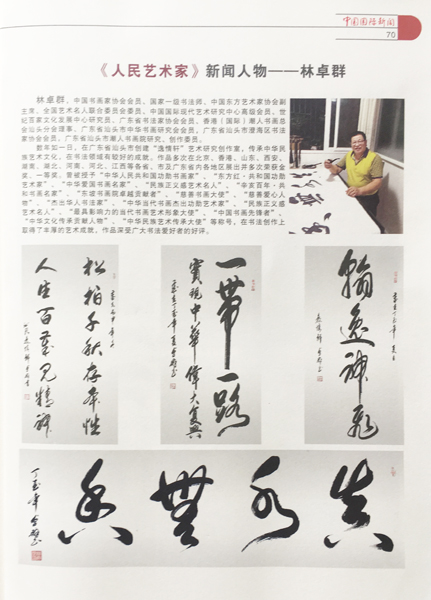 中国国际新闻
70
《人民艺术家》新闻人物——林卓群
林卓群，中国书画家协会会员、国家一级书法师、中国东方艺术家协会副
主席、全国艺术名人联合委员会委员、中国国际现代艺术研究中心高级会员、世
纪百家文化发展中心研究员、广东省书法家协会会员、香港（国际）潮人书画总
会汕头分会理事、广东省汕头市中华书画研究会会员、广东省汕头市澄海区书法
家协会会员、广东省汕头市潮人书画院研究、创作委员。
数年如一日，在广东省汕头市创建“逸情轩”艺术研究创作室，传承中华民
族艺术文化，在书法领域有较好的成就。作品多次在北京、香港、山东、西安、
湖南、湖北、河南、河北、江西等各省、市及广东省内各地区展出并多次荣获金
奖、一等奖。曾被授予“中华人民共和国功勋书画家”、“东方红·共和国功勋
艺术家”、“中华爱国书画名家”、“民族正义感艺术名人”、“辛亥百年·共
和书画名家”、“东坡书画院卓越贡献者”、“慈善书画大使”、“慈善爱心人
物”、“杰出华人书法家”、“中华当代书画杰出功勋艺术家”、“民族正义感
艺术名人”、“最具影响力的当代书画艺术形象大使”、“中国书画先锋者”、
“中华文化传承贡献人物”、“中华民族艺术传承大使”等称号。在书法创作上
取得了丰厚的艺术成就。作品深受广大书法爱好者的好评。
松柏千秋存本性
人生百岁见精神
一带一路
实现中华伟大复兴
翰逸神飞
丁酉年